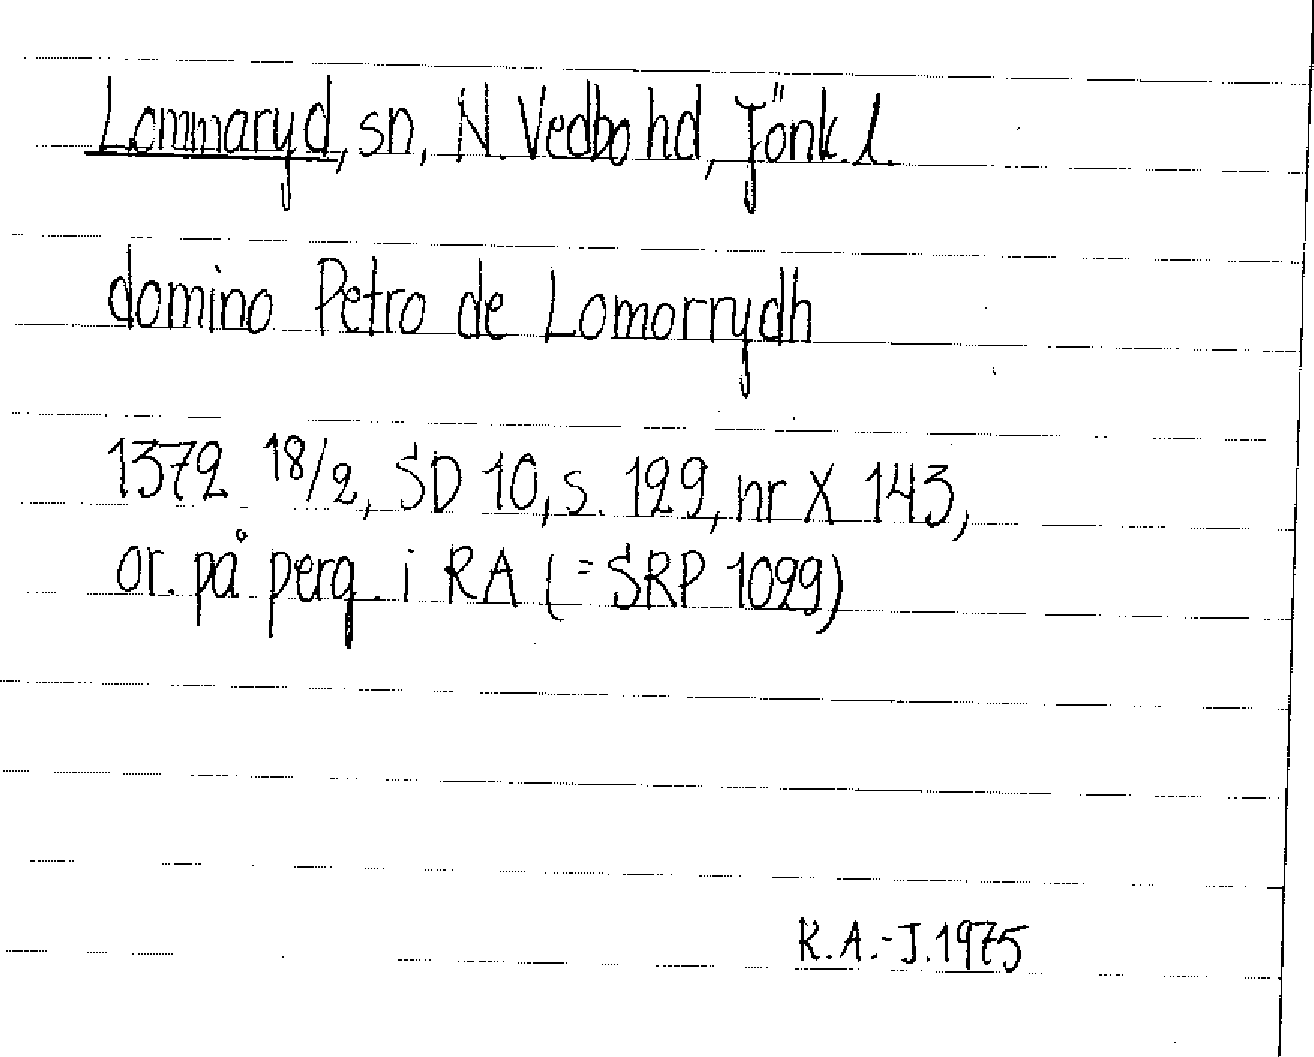 Lommaryd, sn, N. Vedbo hd, Jönk. l.
domino Petro de Lomorrydh
1372 18/2, SD 10, s. 129, nr X 143,
or. på perg. i RA (=SRP 1099)
R.A.-J. 1975